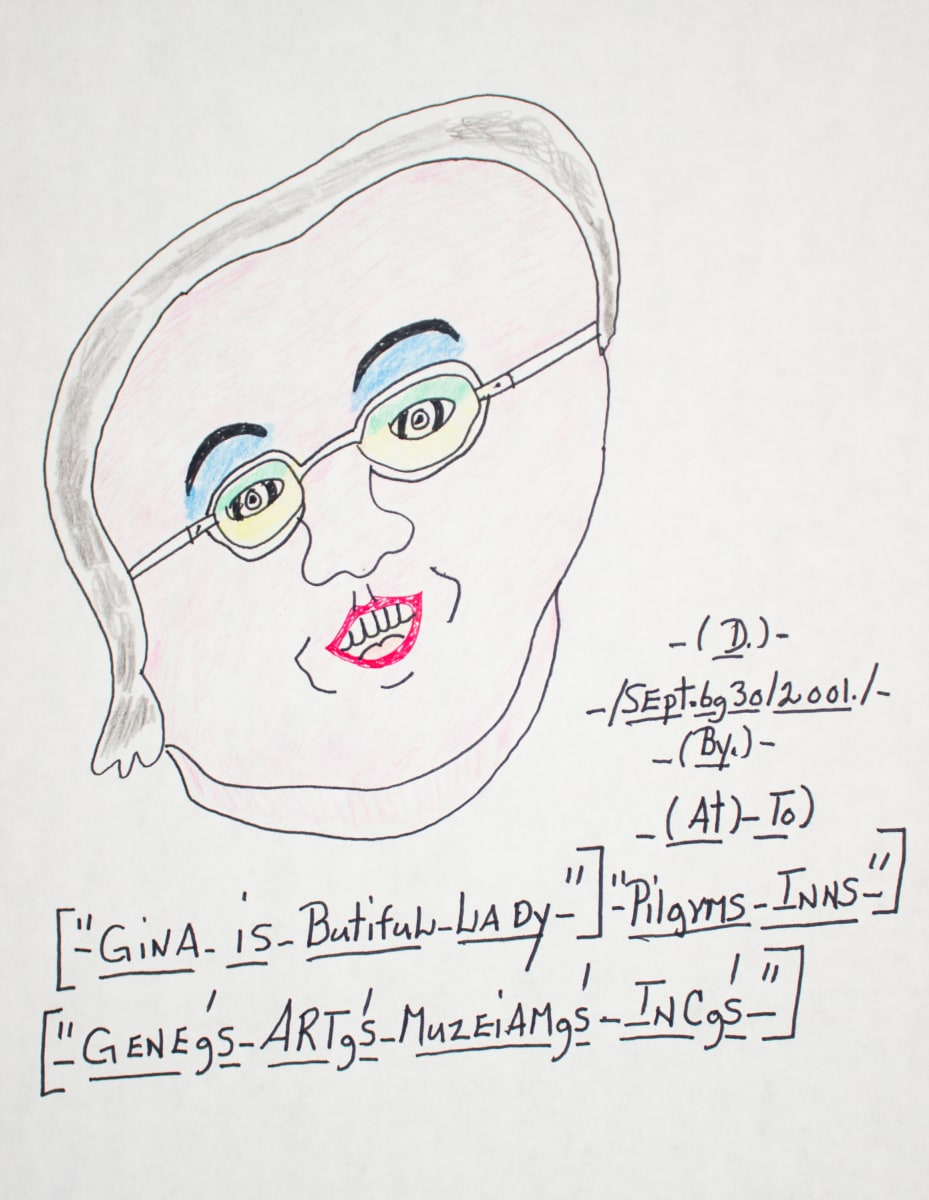 -(D.)-
-/SEpt.bg30/2001./-
-(By.)-
-(At)-To)
["-GiNA-is-Butiful-LADy-"]"-Pilgrms-INNS-"]
["-GENEg's-ARTg's-MuzEiAMg's-INCg's-"]